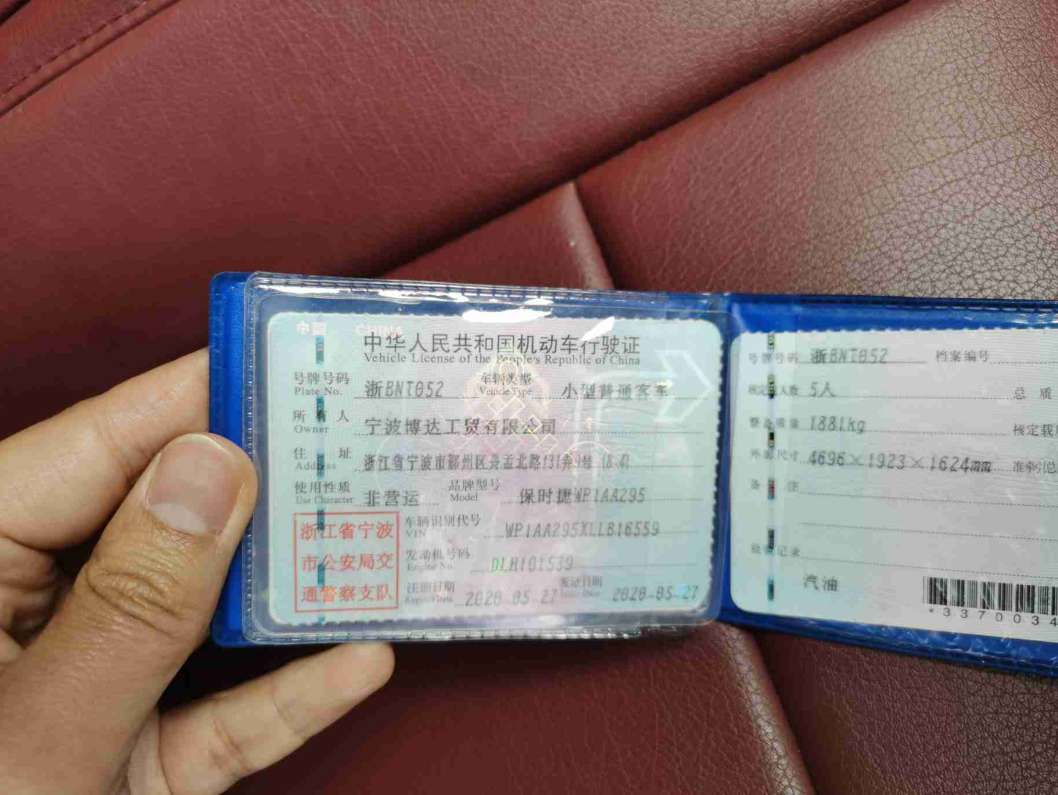 中国 CHINA
中华人民共和国机动车行驶证
Vehicle License of the People's Republic of China
号牌号码 浙BNT052 车辆类型 小型普通客车
Plate No. Vehicle Type
所有人 宁波博达工贸有限公司
Owner
住址 浙江省宁波市鄞州区
Address
使用性质 非营运 品牌型号 保时捷WP1AA295
Use Character Model
浙江省宁波
市公安局交
通警察支队
车辆识别代号 WP1AA295XLLB16559
VIN
发动机号码 DLH101539
Engine No.
注册日期 2020-05-27 发证日期 2020-05-27
Issue Date
号牌号码 浙BNT052 档案编号
核定人数 5人 总质
整备质量 1881kg 核定载
外廓尺寸 4696×1923×1624 准牵引总
备注
检验记录
汽油
*3370034